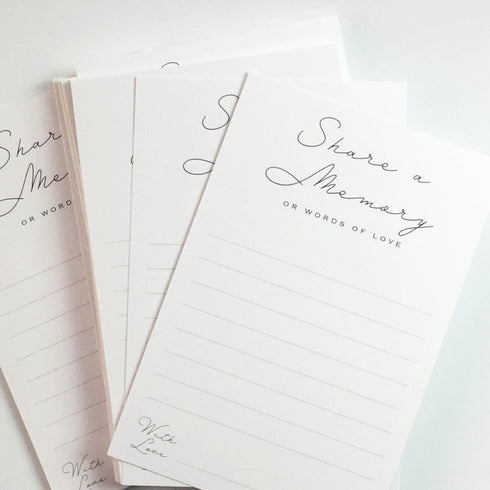 Share a
Memory
OR WORDS OF LOVE
With
Love
Shar
Me
OR WORD
With
Love
S